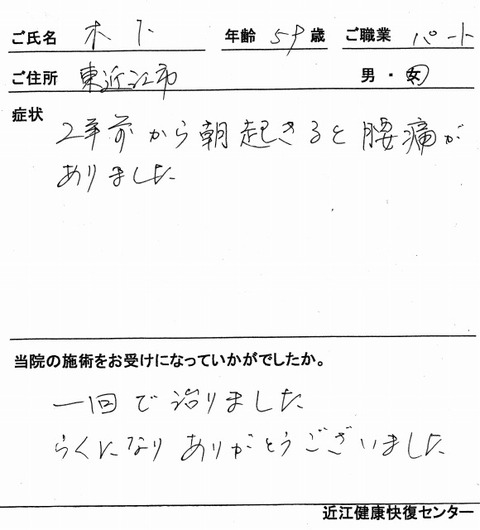 ご氏名 木下 年齢 59歳 ご職業 パート
ご住所 東近江市 男・女
症状
2年前から朝起きると腰痛が
ありました
当院の施術をお受けになっていかがでしたか。
一回で治りました
らくになりありがとうございました
近江健康快復センター